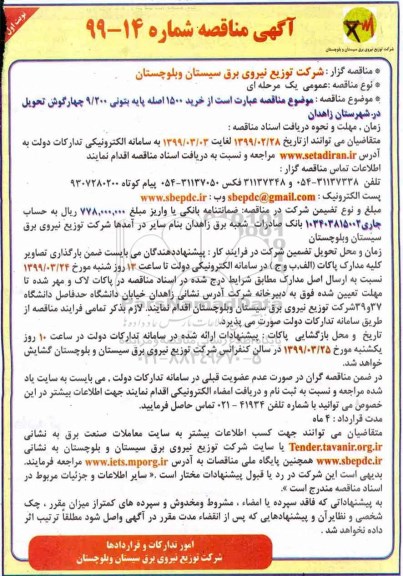 نوبت اول
آگهی مناقصه شماره ۱۴-۹۹
شرکت توزیع نیروی برق سیستان و بلوچستان
* مناقصه گزار : شرکت توزیع نیروی برق سیستان وبلوچستان
* نوع مناقصه :عمومی یک مرحله ای
* موضوع مناقصه : موضوع مناقصه عبارت است از خرید ۱۵۰۰ اصله پایه بتونی ۹/۲۰۰ چهارگوش تحویل
در شهرستان زاهدان
زمان , مهلت و نحوه دریافت اسناد مناقصه :
متقاضیان می توانند از تاریخ ۱۳۹۹/۰۲/۲۸ لغایت ۱۳۹۹/۰۳/۰۳ به سامانه الکترونیکی تدارکات دولت به
آدرس www.setadiran.ir مراجعه و نسبت به دریافت اسناد مناقصه اقدام نمایند
اطلاعات تماس مناقصه گزار :
تلفن ۳۱۱۳۷۳۳۸-۰۵۴ و ۳۱۱۳۷۳۴۸ فکس ۳۱۱۳۷۰۵۰-۰۵۴ پیام کوتاه ۹۳۰۷۲۸۰۲۰۰
پست الکترونیک : sbepdc@gmail.com وب : www.sbepdc.ir
مبلغ و نوع تضمین شرکت در مناقصه: ضمانتنامه بانکی یا واریز مبلغ ۷۷۸,۰۰۰,۰۰۰ ریال به حساب
جاری ۰۱۰۳۴۰۳۸۱۵۰۰۲ بانک صادرات شعبه برق زاهدان بنام سایر در آمدها شرکت توزیع نیروی برق
سیستان وبلوچستان
زمان و محل تحویل تضمین شرکت در فرایند کار : پیشنهاددهندگان می بایست ضمن بارگذاری تصاویر
کلیه مدارک پاکات (الف،ب وج) در سامانه الکترونیکی دولت تا ساعت ۱۳ روز شنبه مورخ ۱۳۹۹/۰۳/۲۴
نسبت به ارسال اصل مدارک مطابق شرایط درج شده در اسناد مناقصه در پاکات لاک و مهر شده تا
مهلت تعیین شده فوق به دبیرخانه شرکت آدرس نشانی زاهدان خیابان دانشگاه حدفاصل دانشگاه
۳۷و۳۹شرکت توزیع نیروی برق سیستان وبلوچستان اقدام نمایند. لازم بذکر تمامی فرایند مناقصه از
طریق سامانه تدارکات دولت صورت می پذیرد.
تاریخ و محل بازگشایی پاکات : پیشنهادات ارائه شده در سامانه تدارکات دولت در ساعت ۱۰ روز
یکشنبه مورخ ۱۳۹۹/۰۳/۲۵ در سالن کنفرانس شرکت توزیع نیروی برق سیستان و بلوچستان گشایش
خواهد شد.
در ضمن مناقصه گران در صورت عدم عضویت قبلی در سامانه تدارکات دولت , می بایست به سایت یاد
شده مراجعه و نسبت به ثبت نام و دریافت امضاء الکترونیکی اقدام نمایند جهت اطلاعات بیشتر در این
خصوص می توانید با شماره تلفن ۴۱۹۳۴ - ۰۲۱ تماس حاصل فرمایید.
مدت قرارداد : ۴ ماه
متقاضیان می توانند جهت کسب اطلاعات بیشتر به سایت معاملات صنعت برق به نشانی
Tender.tavanir.org.ir یا سایت شرکت توزیع نیروی برق سیستان و بلوچستان به نشانی
www.sbepdc.ir همچنین پایگاه ملی مناقصات به آدرس www.iets.mporg.ir مراجعه فرمایند.
بدیهی است این شرکت در رد یا قبول پیشنهادات مختار است .« سایر اطلاعات و جزئیات مربوط در
اسناد مناقصه مندرج است ».
به پیشنهاداتی که فاقد سپرده یا امضاء , مشروط ومخدوش و سپرده های کمتراز میزان مقرر , چک
شخصی و نظایرآن و پیشنهادهایی که پس از انقضاء مدت مقرر در آگهی واصل شود مطلقا ترتیب اثر
داده نخواهد شد .
امور تدارکات و قراردادها
شرکت توزیع نیروی برق سیستان وبلوچستان